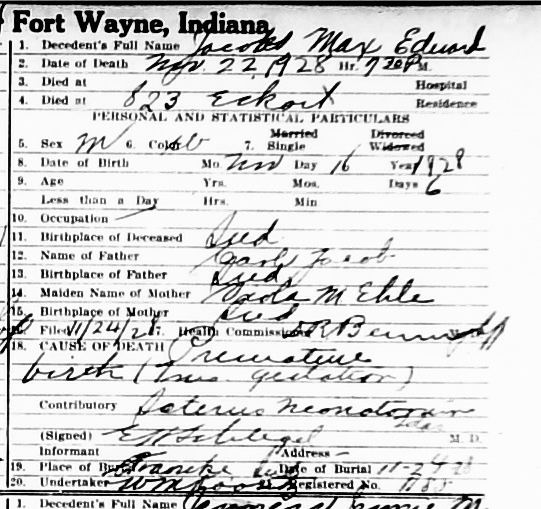 Fort Wayne, Indiana
1. Decedent's Full Name Jacobs Max Edward
2. Date of Death Nov. 22, 1928 Hr. 7 30 P M.
3. Died at Hospital
4. Died at 823 Eckart Residence
PERSONAL AND STATISTICAL PARTICULARS
5. Sex M 6. Color W 7. Single Married Divorced Widowed
8. Date of Birth Mo. Nov Day 16 Year 1928
9. Age Yrs. Mos. Days 6
Less than a Day Hrs. Min
10. Occupation
11. Birthplace of Deceased Ind
12. Name of Father Jacob
13. Birthplace of Father Ind
14. Maiden Name of Mother M Ehle
15. Birthplace of Mother Ind
16. Filed 11/24/28 17. Health Commissioner
18. CAUSE OF DEATH Premature
birth ( mo. gestation)
Contributory Icterus neonatorum
(Signed) E H Schlegel M. D.
Informant Address
19. Place of Burial Date of Burial 11-24-28
20. Undertaker Registered No.
1. Decedent's Full Name